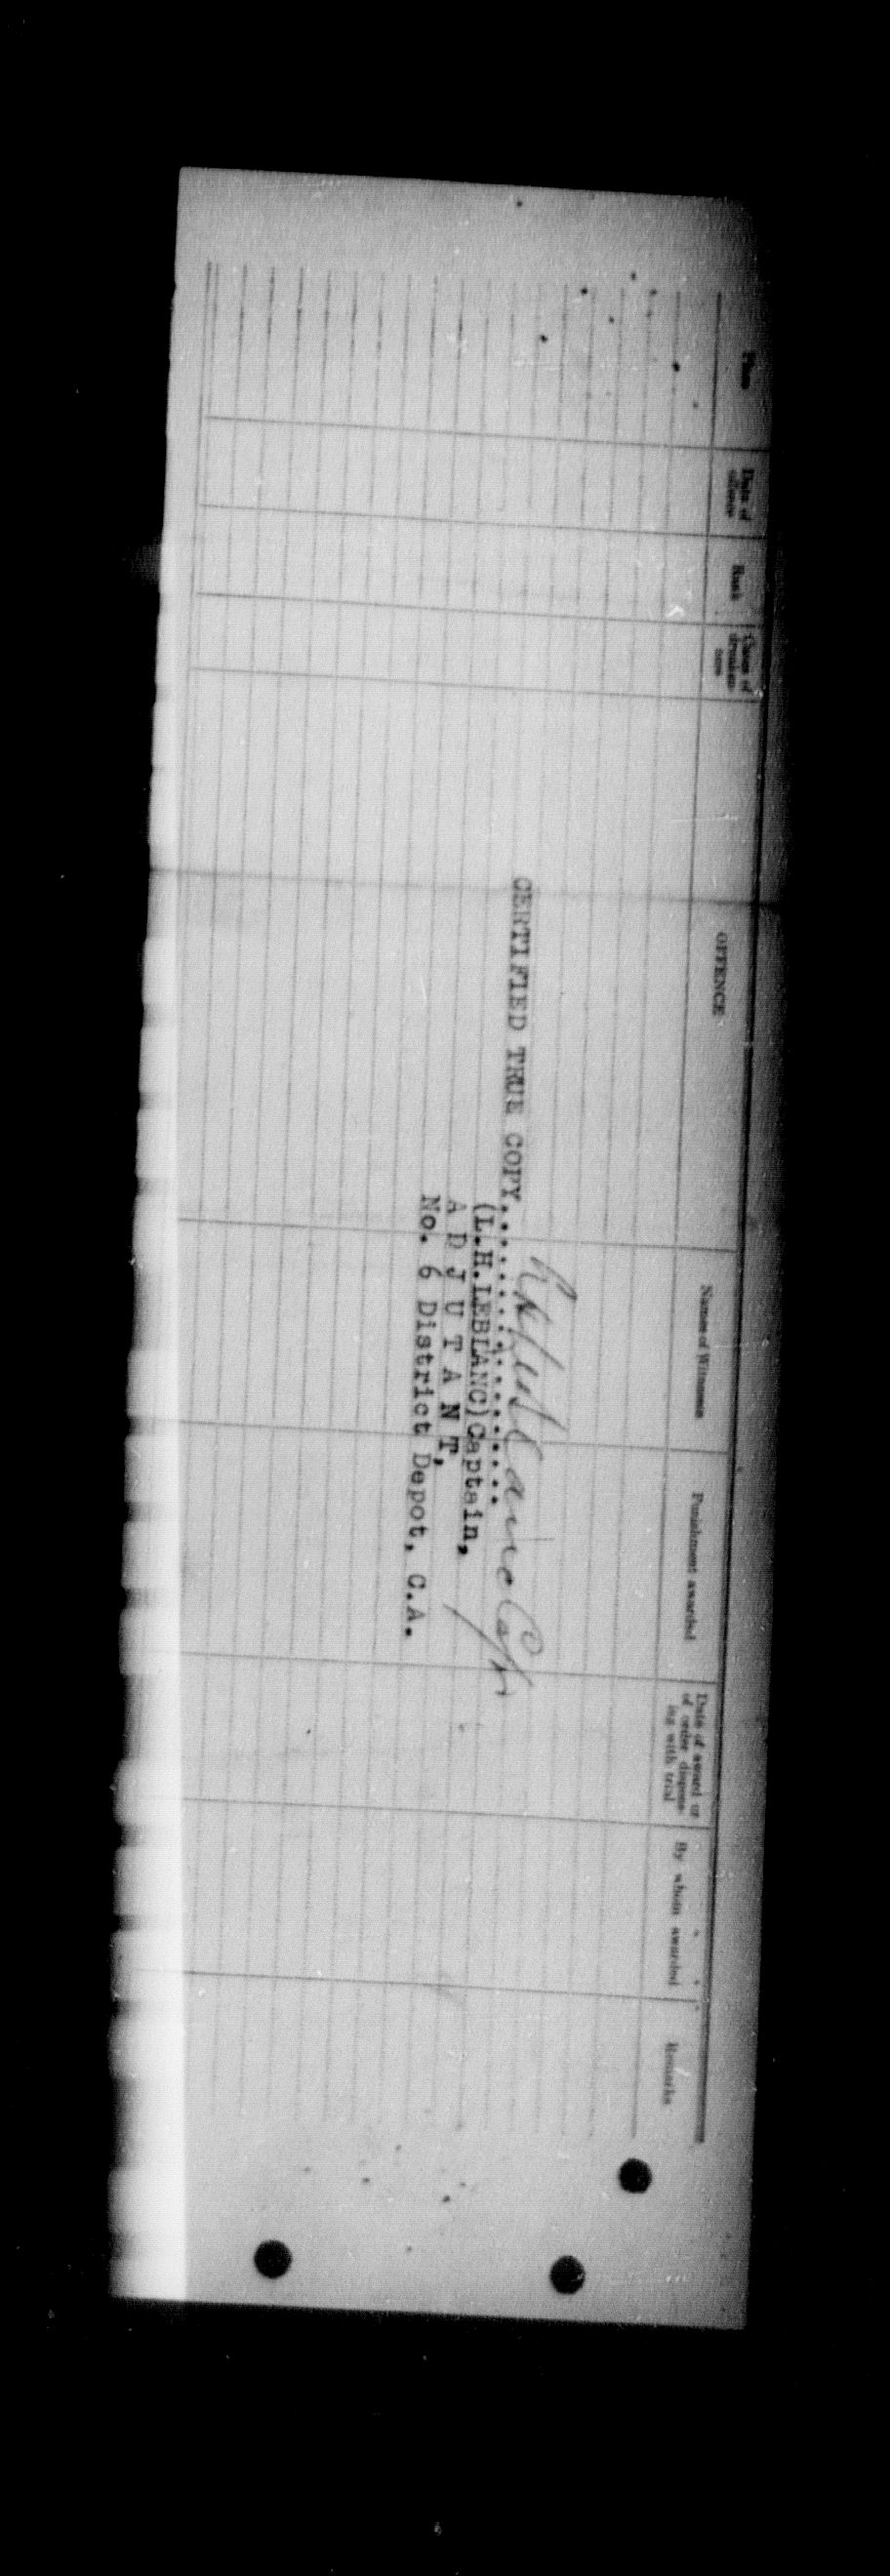 Place
Date of
offence
Rank
Cases of
drunken-
ness
OFFENCE
Names of Witnesses
Punishment awarded
Date of award or
of order dispens-
ing with trial
By whom awarded
Remarks
CERTIFIED TRUE COPY..................
(L.H.LEBLANC)Captain,
A D J U T A N T,
No. 6 District Depot, C.A.